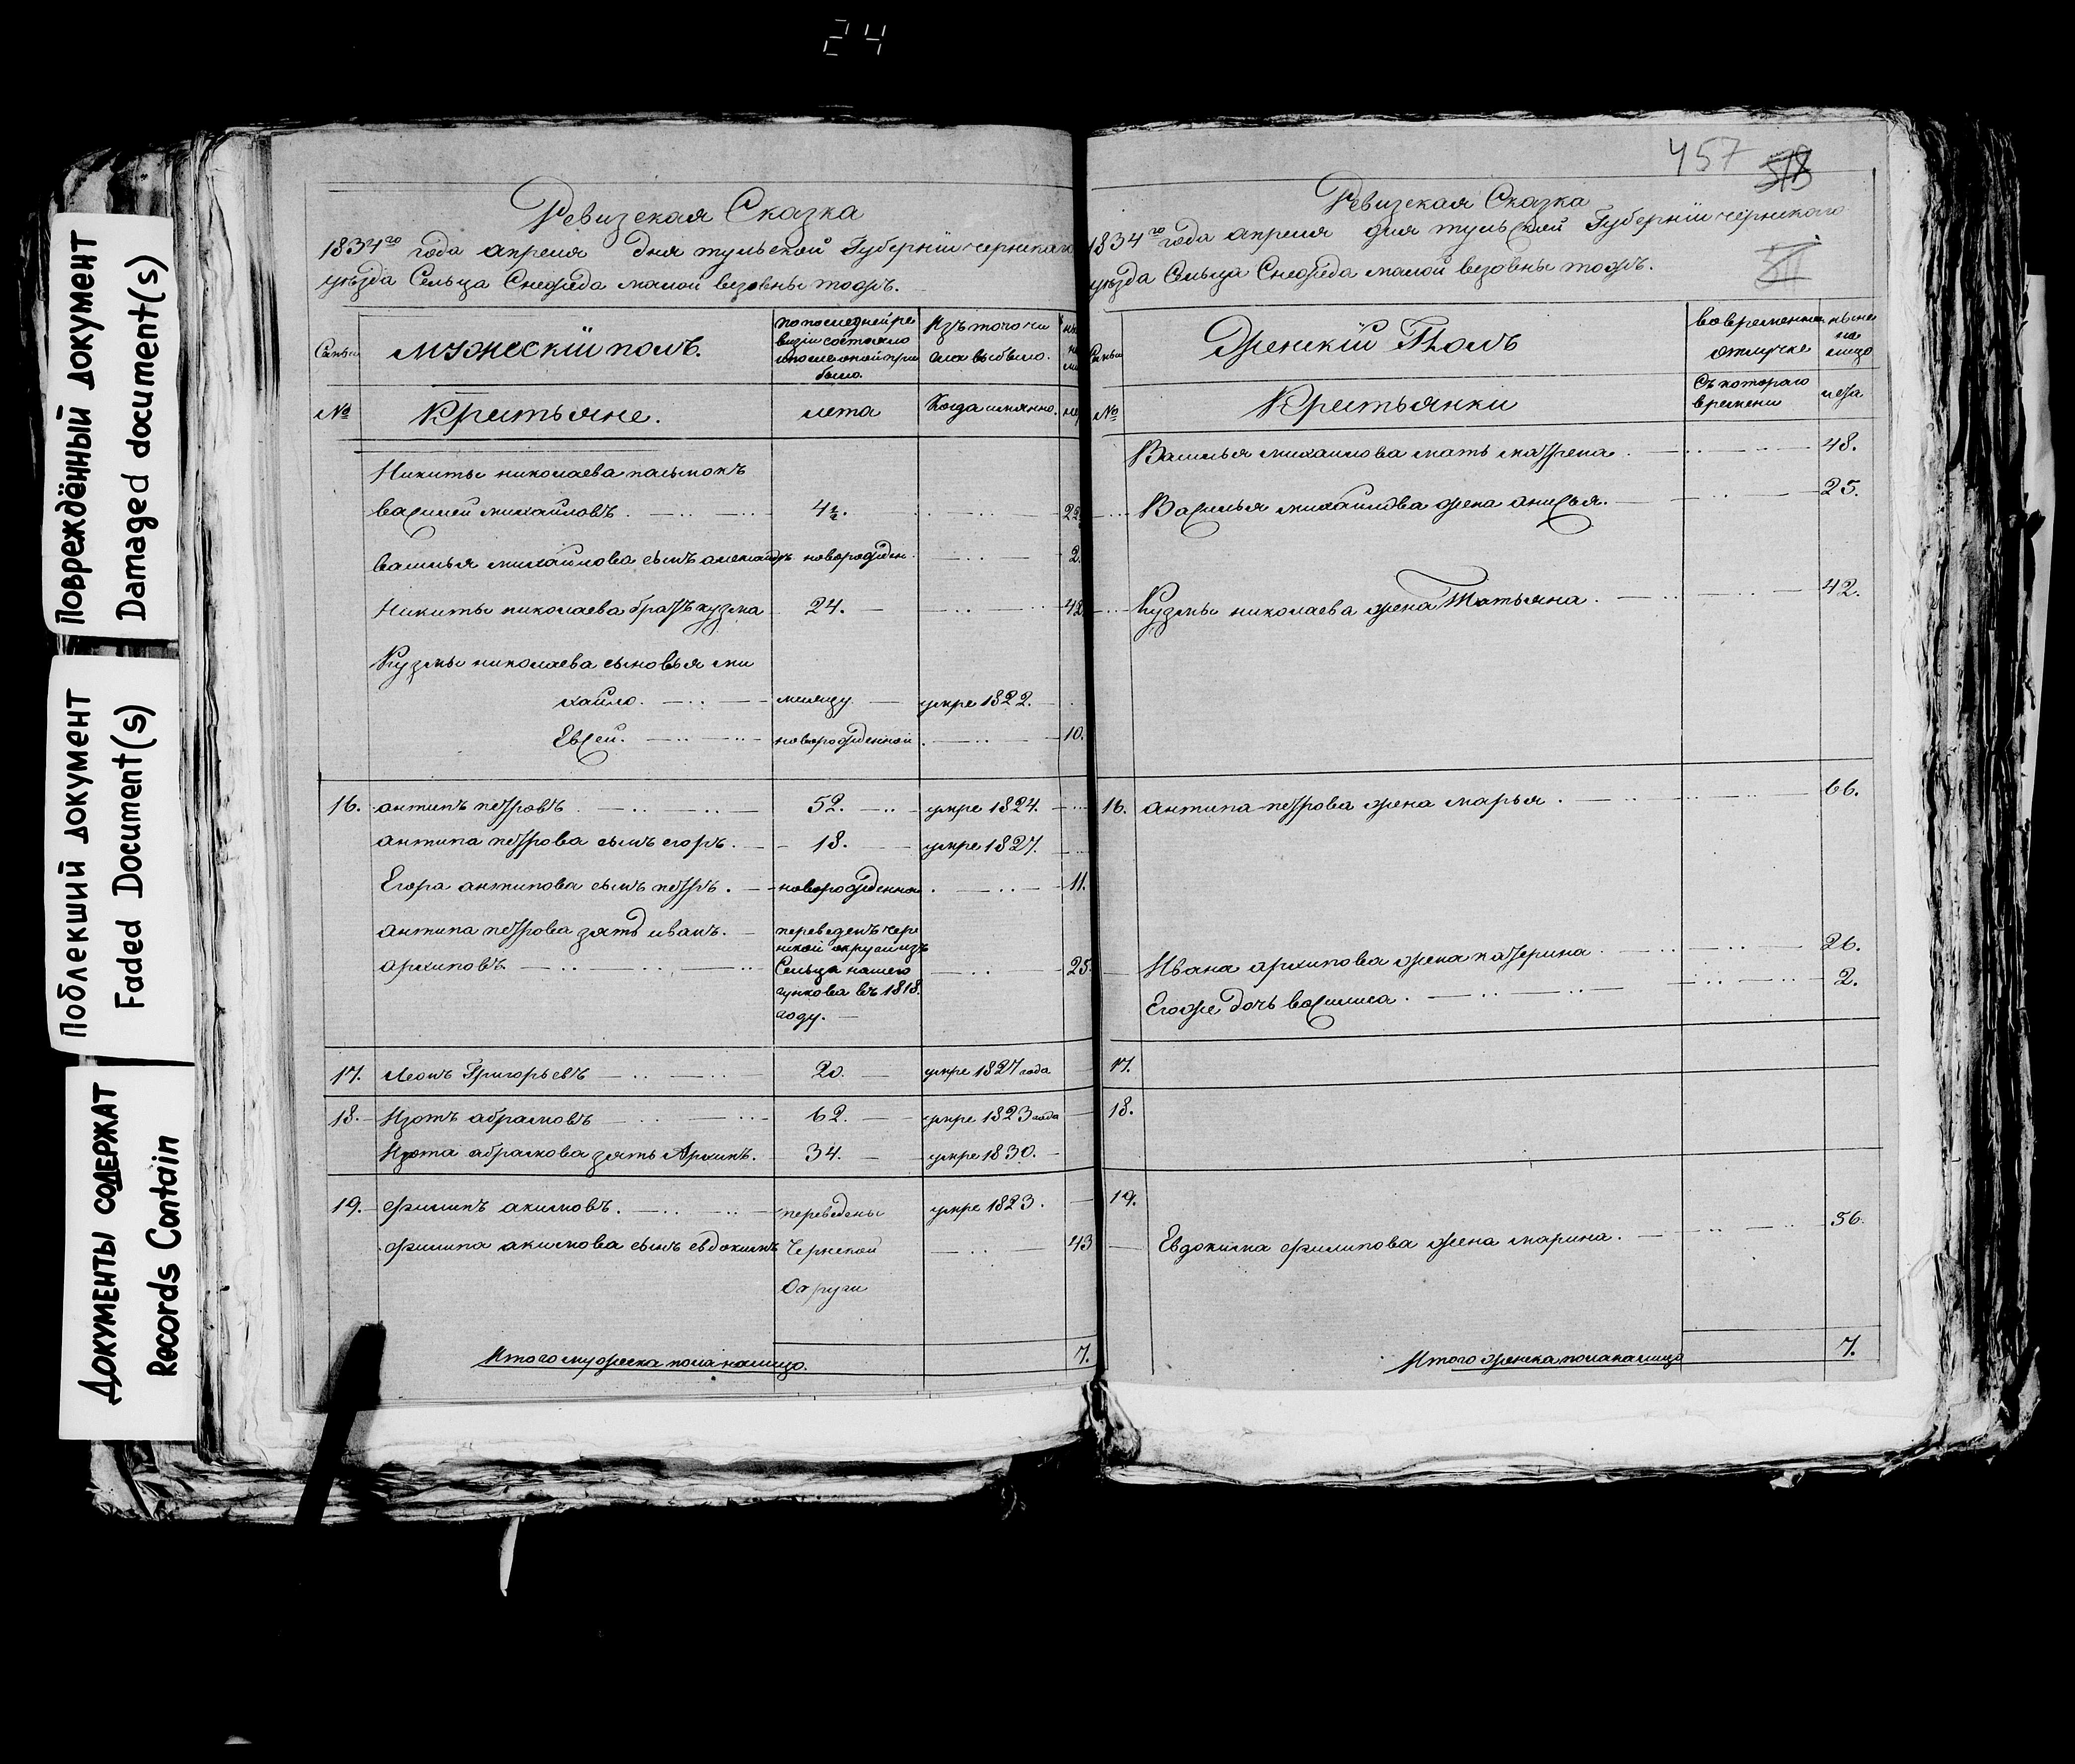 24
Повреждённый документ
Damaged document(s)
Поблекший документ
Faded Document(s)
Документы содержат
Records Contain
Ревизская Сказка
1834го года апреля дня тульской Губернїи чернскаго
уѣзда Сельца Снежеда малой везовны тожъ.
Семьи
Мужескїй полъ.
по последней ре
визїи состояло
и после оной при
было.
Изъ того чи
сла выбыло.
№
Крестьяне.
лета
Когда имянно.
Никиты николаева пасынокъ
василей михайловъ.
4½.
василья михайлова сынъ александръ
новорожден.
2.
Никиты николаева братъ кузма
24.
Кузмы николаева сыновья ми
хайло.
месяцу
умре 1822.
Евсей.
новорожденной
10.
16. антипъ петровъ
52.
умре 1824.
антипа петрова сынъ егоръ.
18.
умре 1827.
Егора антипова сынъ петръ.
новорожденной
11.
антипа петрова зять иванъ
архиповъ
переведенъ чер
нской округи изъ
Сельца нашего
в 1818.
году.
25.
17. Леонъ Григорьевъ
20.
умре 1827 года
18. Изотъ абрамовъ
62.
умре 1823 года
Изота абрамова зять Архипъ.
34.
умре 1830.
19. филипъ акимовъ.
переведены
умре 1823.
филипа акимова сынъ евдокимъ
Чернской
43
Округи
Итого мужеска пола налицо.
7.
457
Ревизская Сказка
1834го года апреля дня тульской Губернїи чернскаго
уѣзда Сельца Снежеда малой везовны тожъ.
Семьи
Женскїй Полъ
во временной
отлучке
ныне
на
лицо
№
Крестьянки
Съ котораго
времени
лета
Василья михайлова мать матрена
48.
Василья михайлова жена анисья.
25.
Кузмы николаева жена Татьяна
42.
16. антипа петрова жена марья
66.
Ивана архипова жена катерина
26.
Егоже дочь василиса
2.
17.
18.
19.
Евдокима филипова жена марина.
36.
Итого женска пола налицо
7.